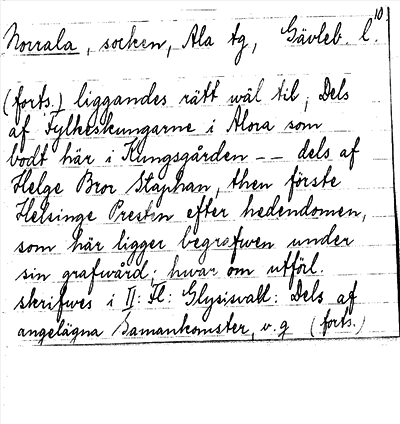 10.
Norrala, socken, Ala tg, Gävleb. l.
(forts.) liggandes rätt wäl til; Dels
af Fylkeskungarne i Alora som
bodt här i Kungsgården -- dels af
Helge Bror Staphan, then förste
Helsinge Presten efter hedendomen,
som här ligger begrafwen under
sin grafwård; hwar om utförl.
skrifwes i II: Fl: Glysisvall: Dels af
angelägna Samankomster, v.g (forts.)